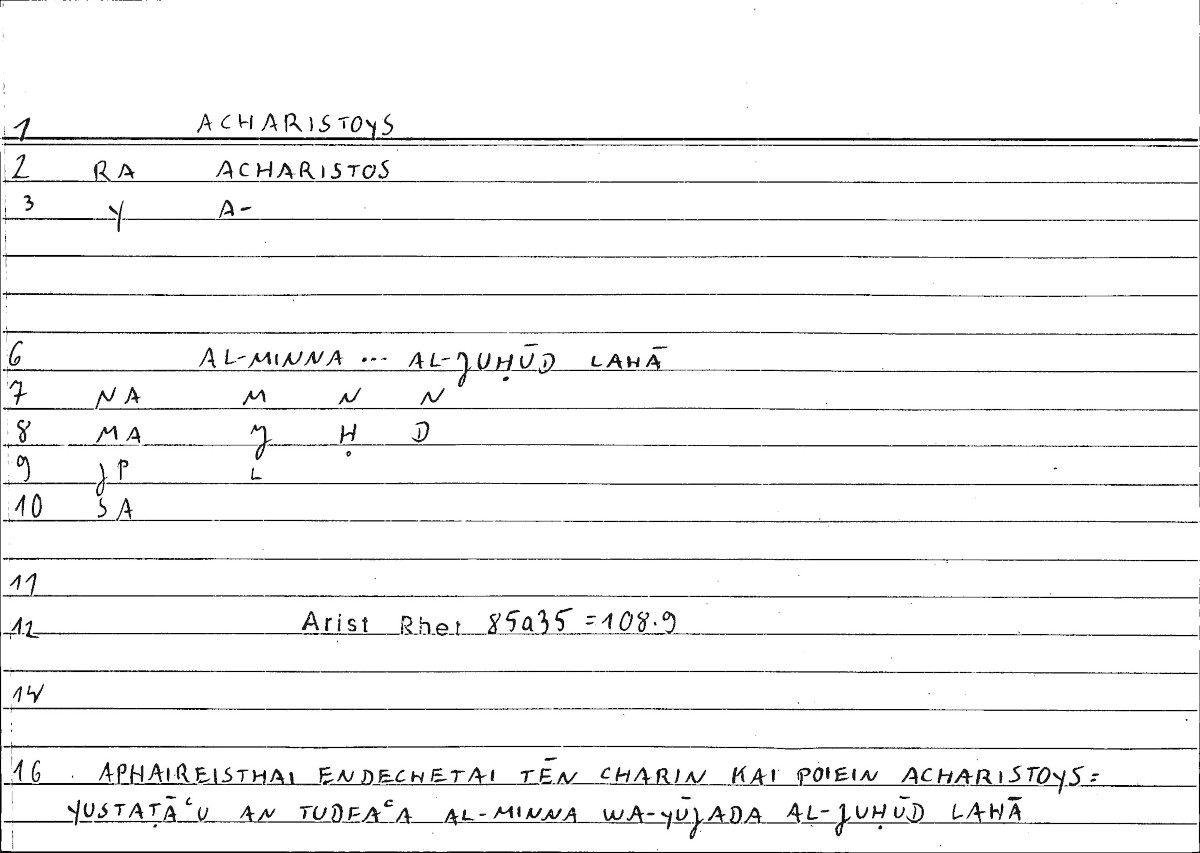 1 ACHARISTOYS
2 RA ACHARISTOS
3 Y A-
6 AL-MINNA ... AL-JUḤŪD LAHĀ
7 NA M N N
8 MA J Ḥ D
9 JP L
10 SA
11
12 Arist Rhet 85a35 = 108.9
14
16 . APHAIREISTHAI ENDECHETAI TĒN CHARIN KAI POIEIN ACHARISTOYS =
YUSTAṬĀʿU AN TUDFAʿA AL-MINNA WA-YŪJADA AL-JUḤŪD LAHĀ